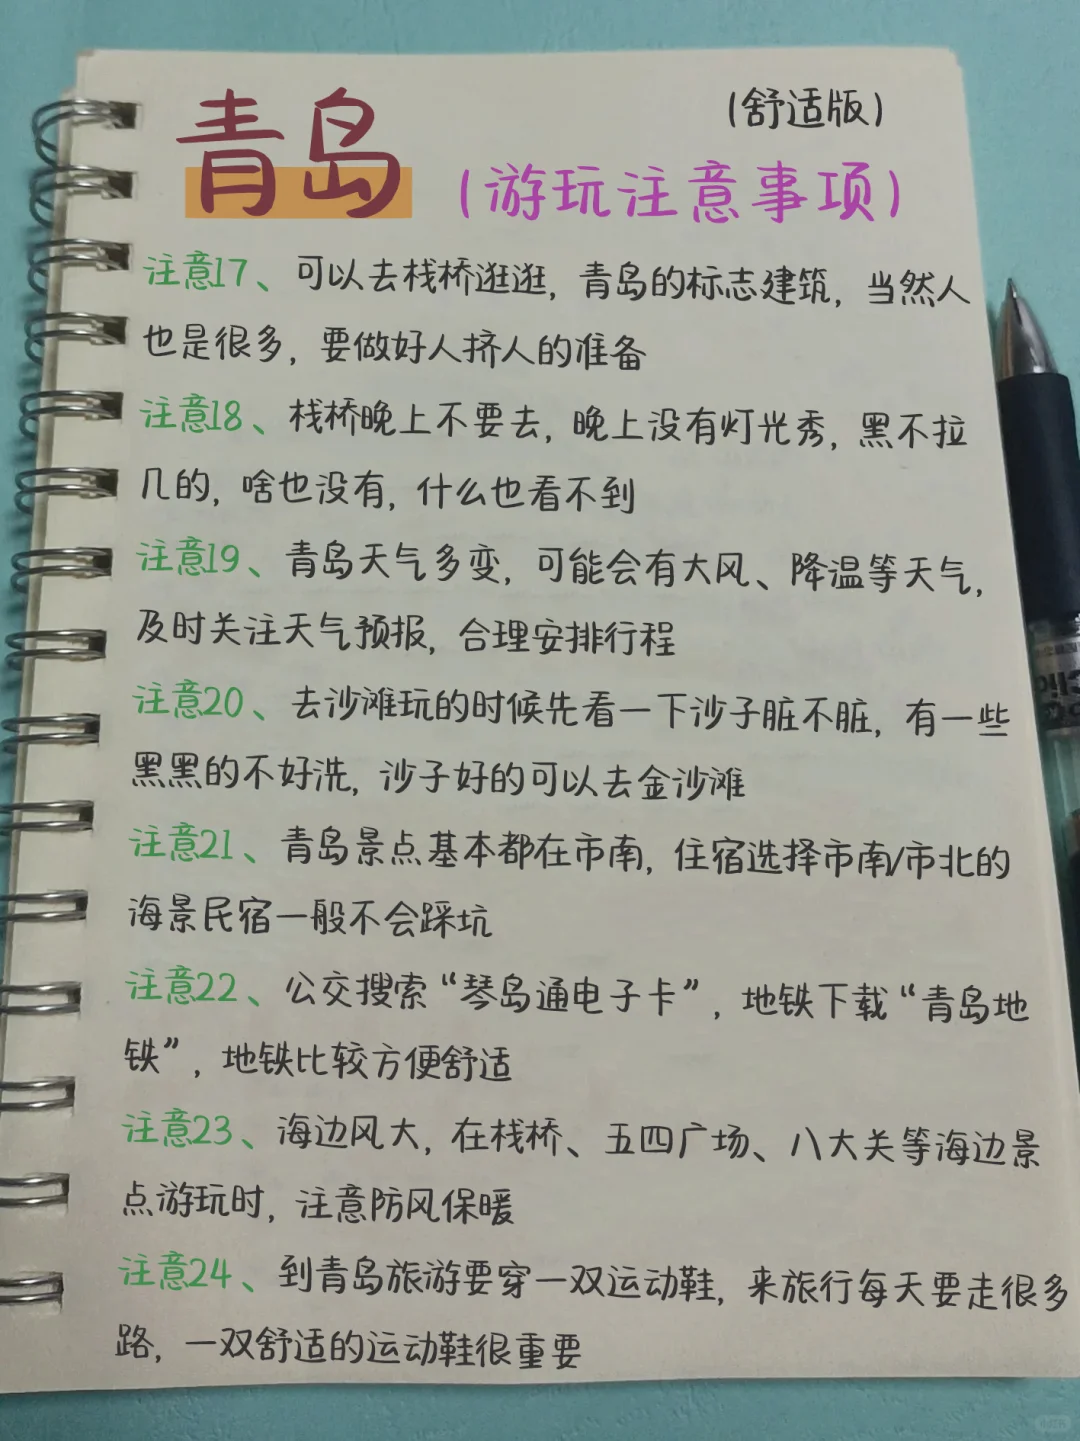 (舒适版)
青岛
(游玩注意事项)
注意17、可以去栈桥逛逛，青岛的标志建筑，当然人
也是很多，要做好人挤人的准备
注意18、栈桥晚上不要去，晚上没有灯光秀，黑不拉
几的，啥也没有，什么也看不到
注意19、青岛天气多变，可能会有大风、降温等天气，
及时关注天气预报，合理安排行程
注意20、去沙滩玩的时候先看一下沙子脏不脏，有一些
黑黑的不好洗，沙子好的可以去金沙滩
注意21、青岛景点基本都在市南，住宿选择市南/市北的
海景民宿一般不会踩坑
注意22、公交搜索“琴岛通电子卡”，地铁下载“青岛地
铁”，地铁比较方便舒适
注意23、海边风大，在栈桥、五四广场、八大关等海边景
点游玩时，注意防风保暖
注意24、到青岛旅游要穿一双运动鞋，来旅行每天要走很多
路，一双舒适的运动鞋很重要